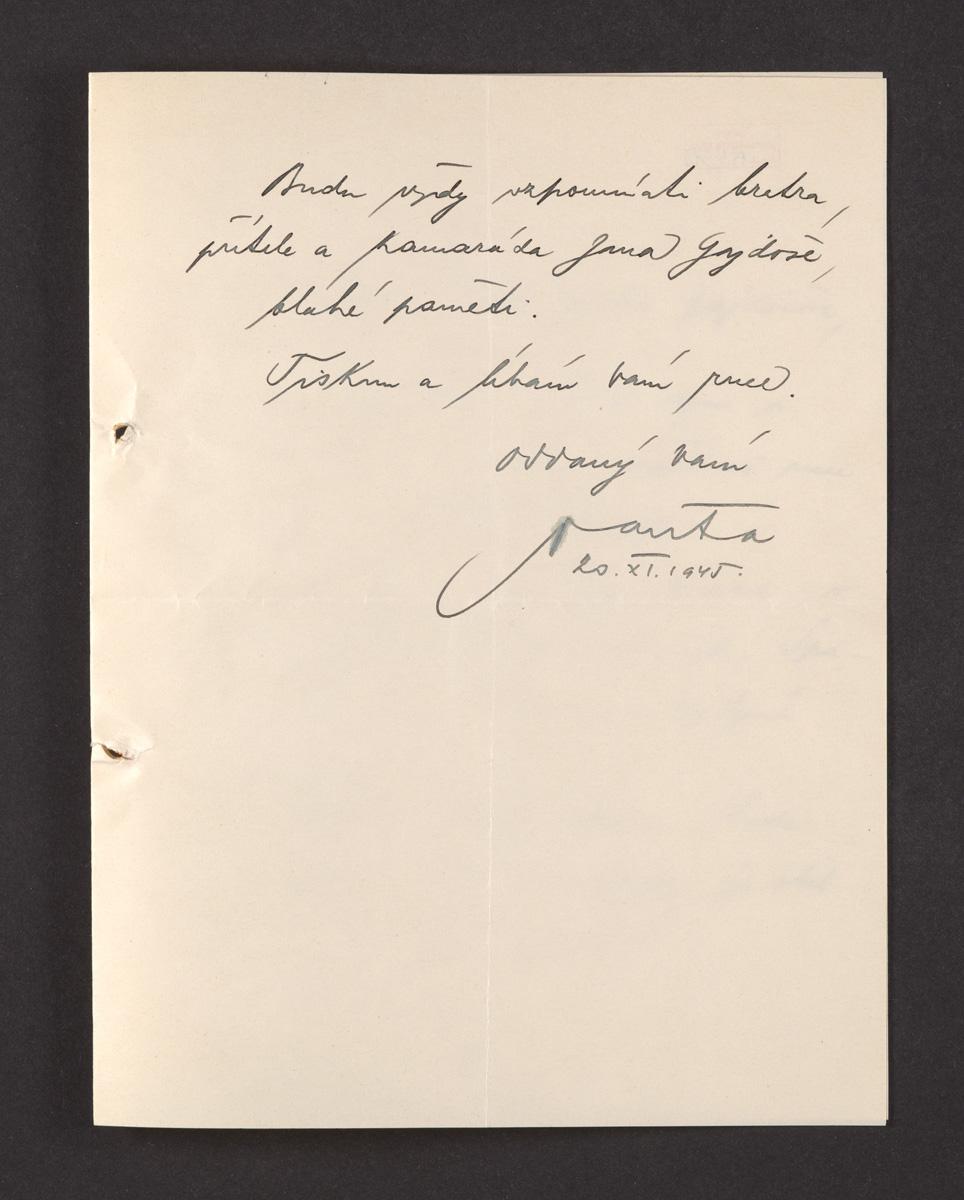 Budu vždy vzpomínati bratra,
přítele a kamaráda Jana Gajdoše,
blahé paměti.
Tisknu a líbám Vám ruce.
Oddaný Vám
20. XI. 1945.